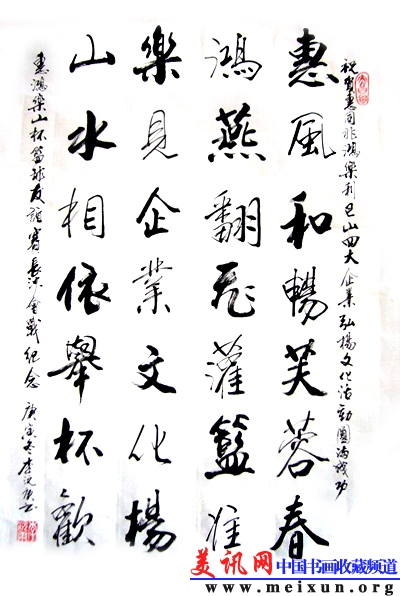 祝賀惠同非鴻樂利巴山四大企業弘楊文化活動圓滿成功
惠風和暢芙蓉春
鴻燕翻飛灌籃准
樂見企業文化楊
山水相依舉杯歡
惠鴻樂山杯籃球友誼賽長沙會戰紀念
庚寅冬李
美讯网 中国书画收藏频道
www.meixun.org